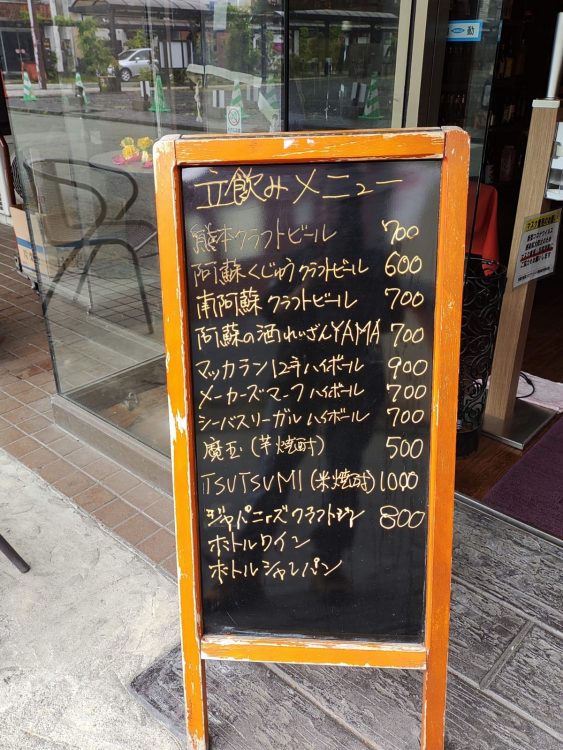 立飲みメニュー
熊本クラフトビール 700
阿蘇くじゅうクラフトビール 600
南阿蘇クラフトビール 700
阿蘇の酒れいざんYAMA 700
マッカラン12年ハイボール 900
メーカーズマークハイボール 700
シーバスリーガルハイボール 700
魔王(芋焼酎) 500
TSUTSUMI(米焼酎) 1000
ジャパニーズクラフトジン 800
ボトルワイン
ボトルシャンパン
動